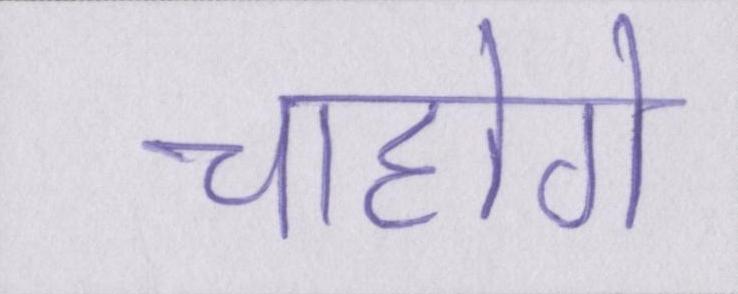 चाहोगे